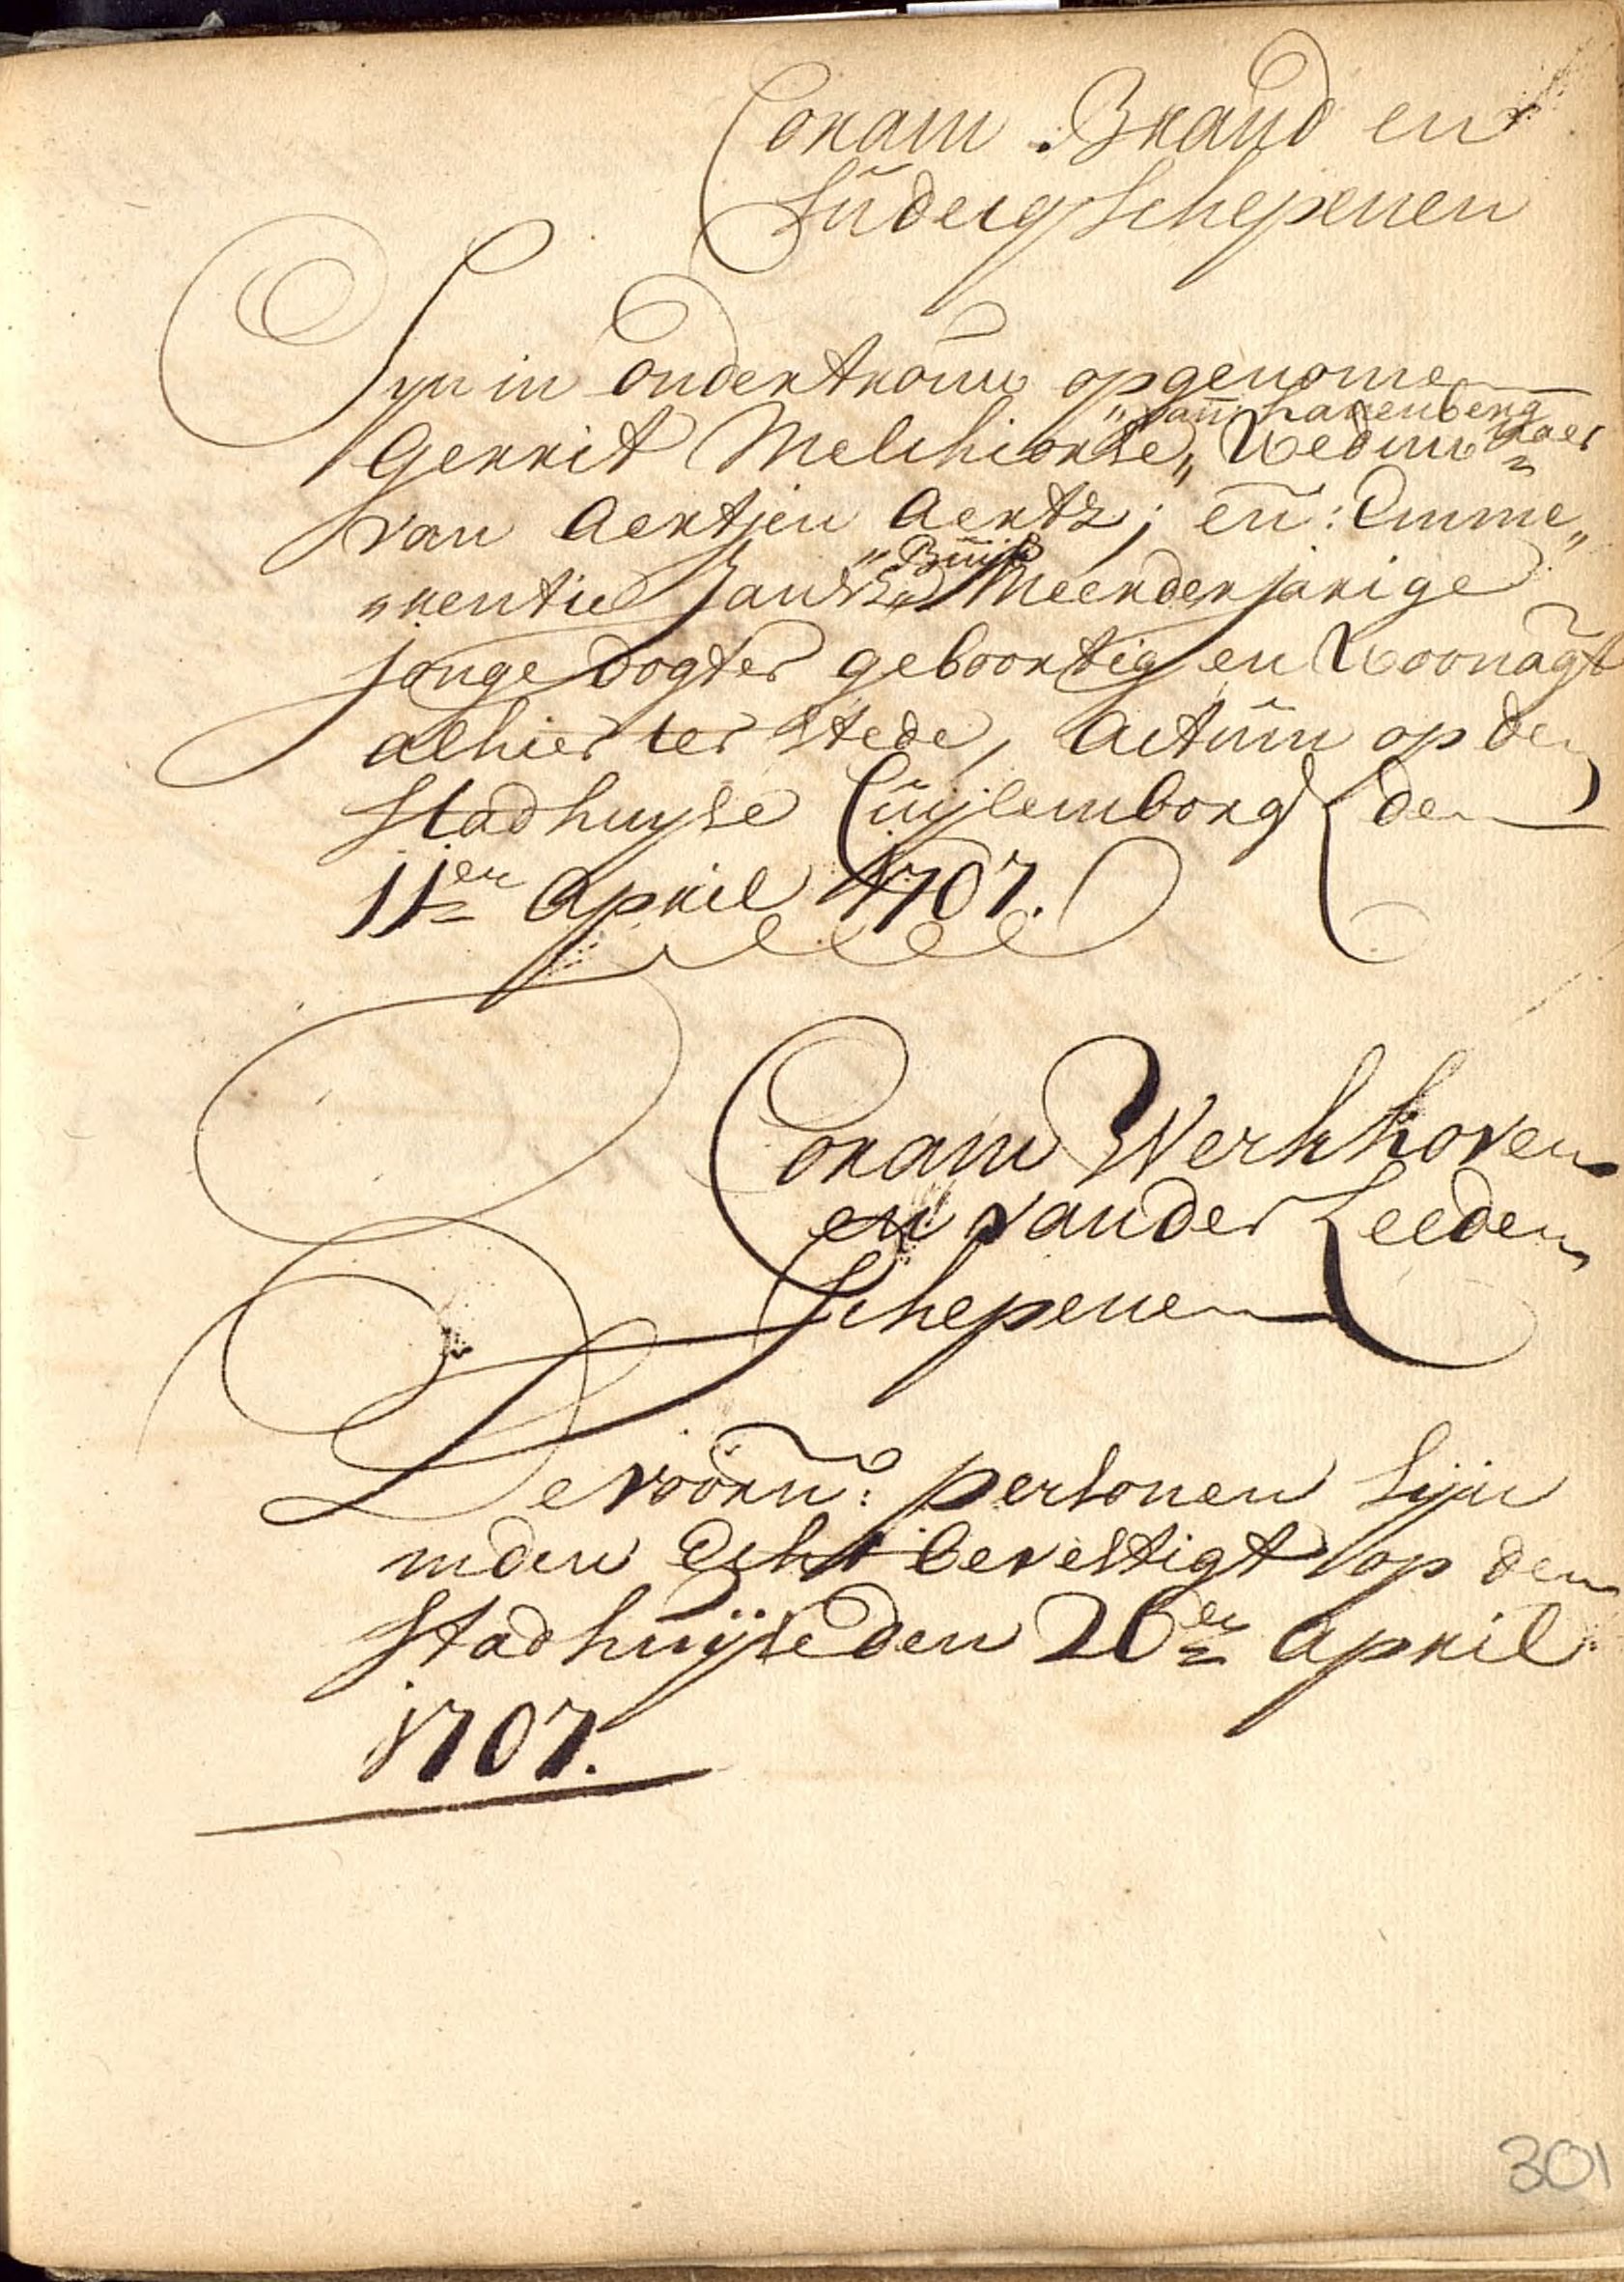 Coram Brand en
Sūderg Schepenen
Syn in ondertroūw opgenomen
„van Lakenberg
Gerrit Melchiorse„ Weduwnaer
van Aertjen Aerts; en̄: Emme„
„ Būijs
„rentie Jans„ Meerderjarige
jonge dogter geboortig en Woonāgt
alhier ter stede, Actūm op den
Stadhuyse Cūijlemborg den
11en April 1707.
Coram Werkhoven
en vander Leeden
Schepenen
De voorn: persoonen sijn
inden Echt bevestigt op den
Stadhūijse den 26en April
1707.
301